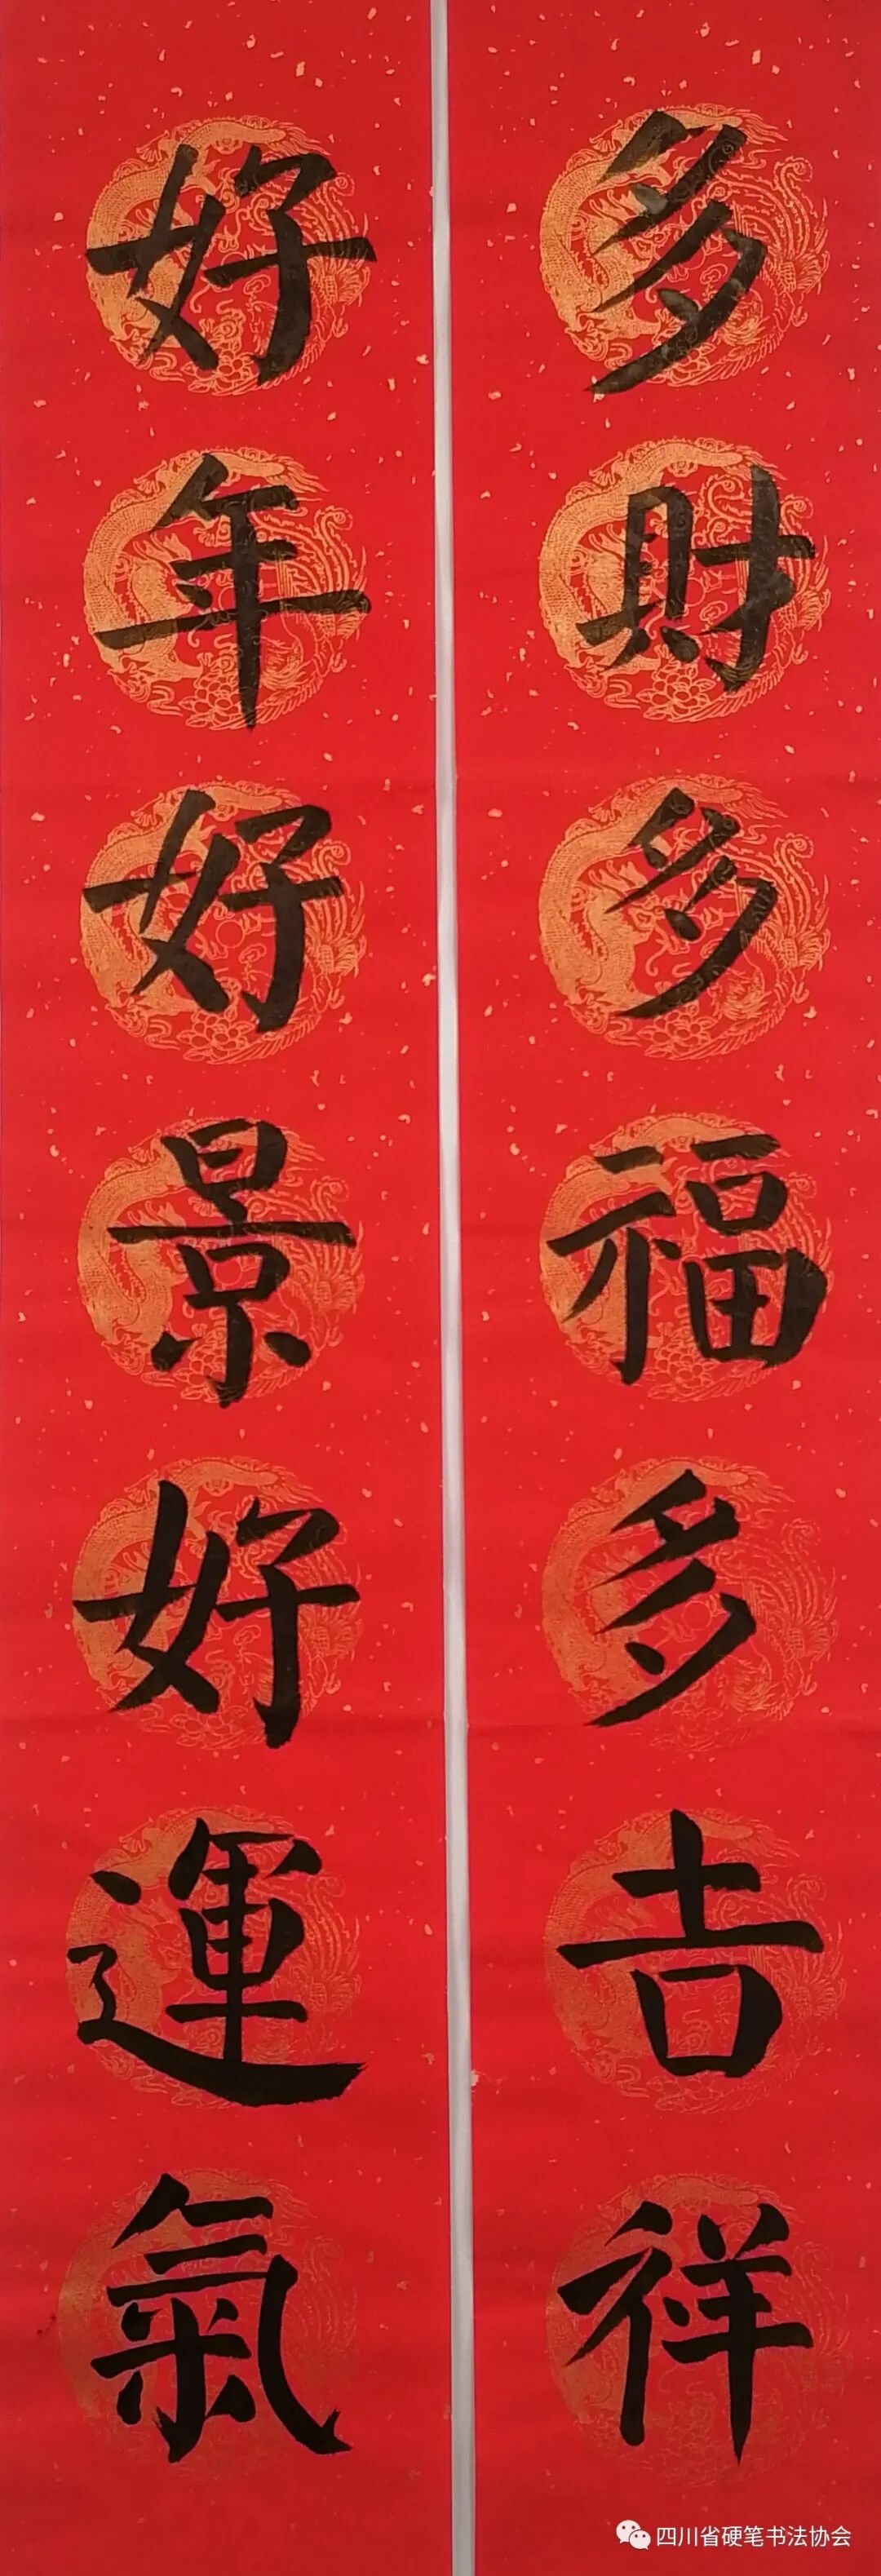 多財多福多吉祥
好年好景好運氣
四川省硬笔书法协会